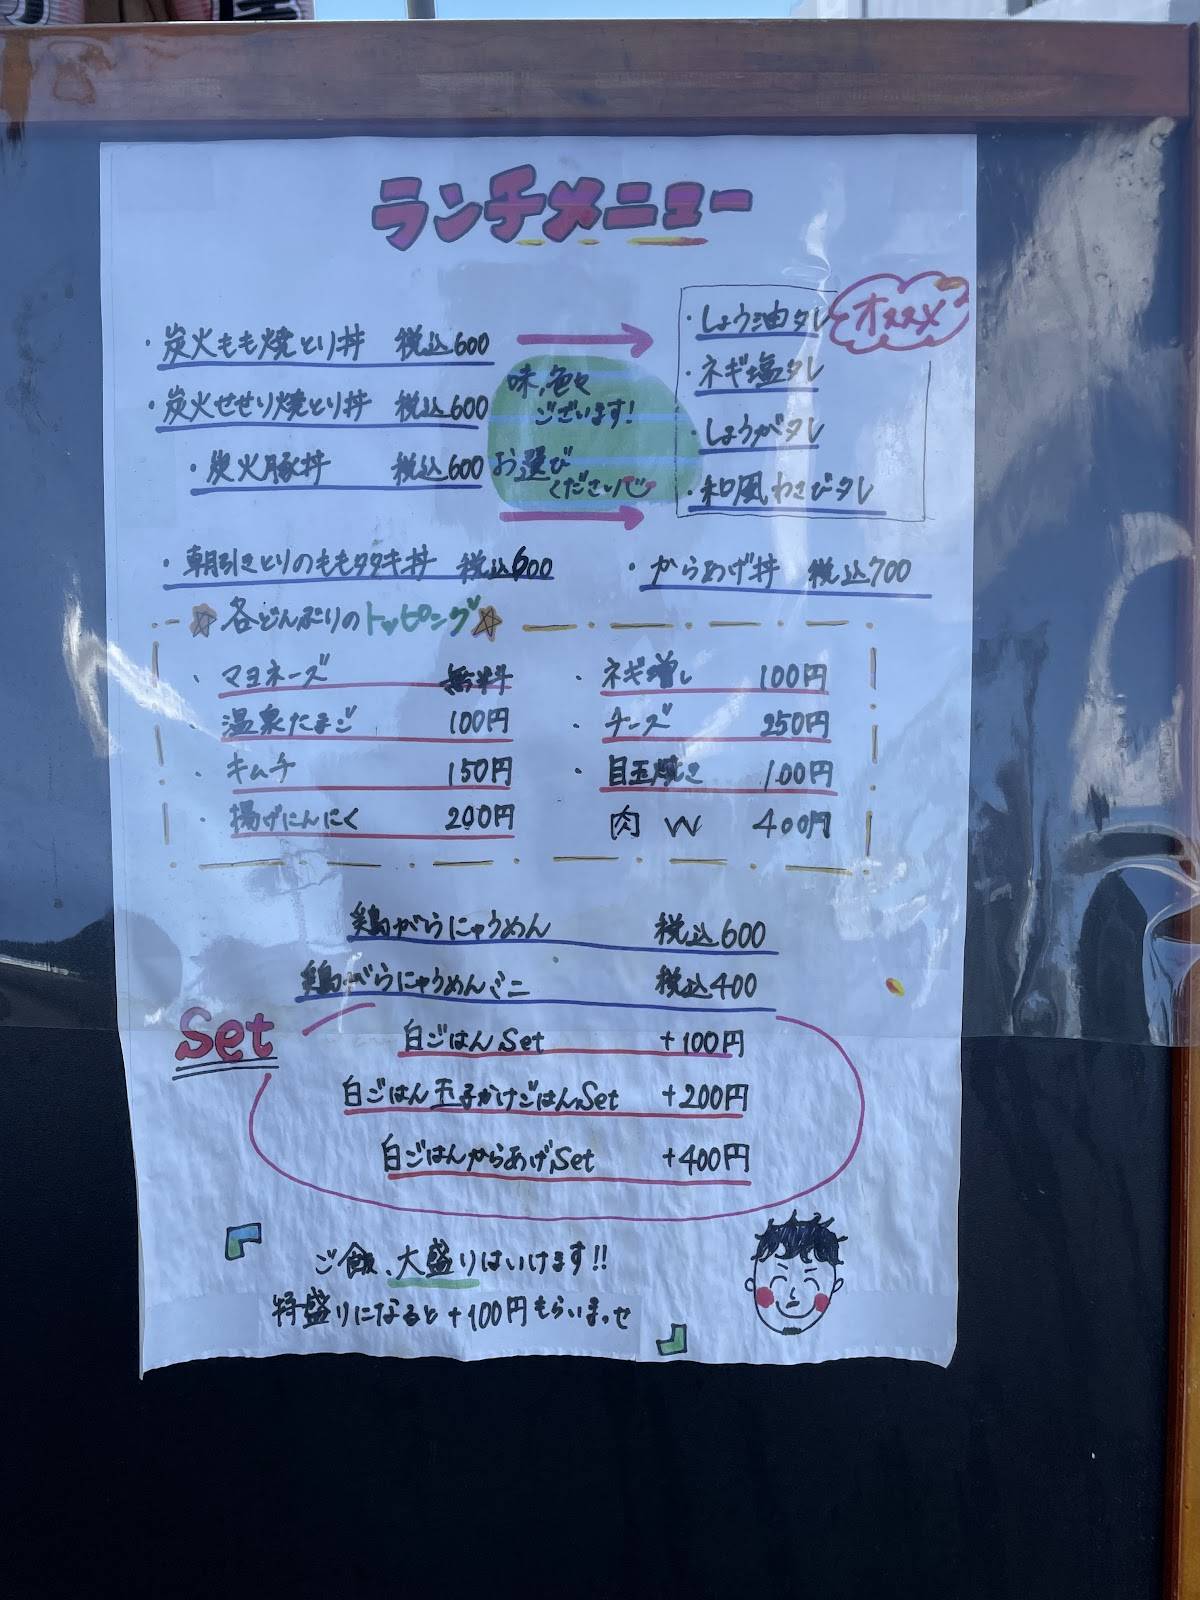 ランチメニュー
・炭火もも焼とり丼 税込600
・炭火せせり焼とり丼 税込600
・炭火豚丼 税込600
味、色々
ございます!
お選び
ください
オススメ
・しょう油タレ
・ネギ塩タレ
・しょうがタレ
・和風わさびタレ
・朝引きとりのももタタキ丼 税込600
・からあげ丼 税込700
☆各どんぶりのトッピング☆
・マヨネーズ 無料
・ネギ増し 100円
・温泉たまご 100円
・チーズ 250円
・キムチ 150円
・目玉焼き 100円
・揚げにんにく 200円
肉 W 400円
鶏がらにゅうめん 税込600
鶏がらにゅうめんミニ 税込400
Set
白ごはんSet +100円
白ごはん玉子かけごはんSet +200円
白ごはんからあげSet +400円
ご飯、大盛りはいけます!!
特盛りになると+100円もらいまっせ